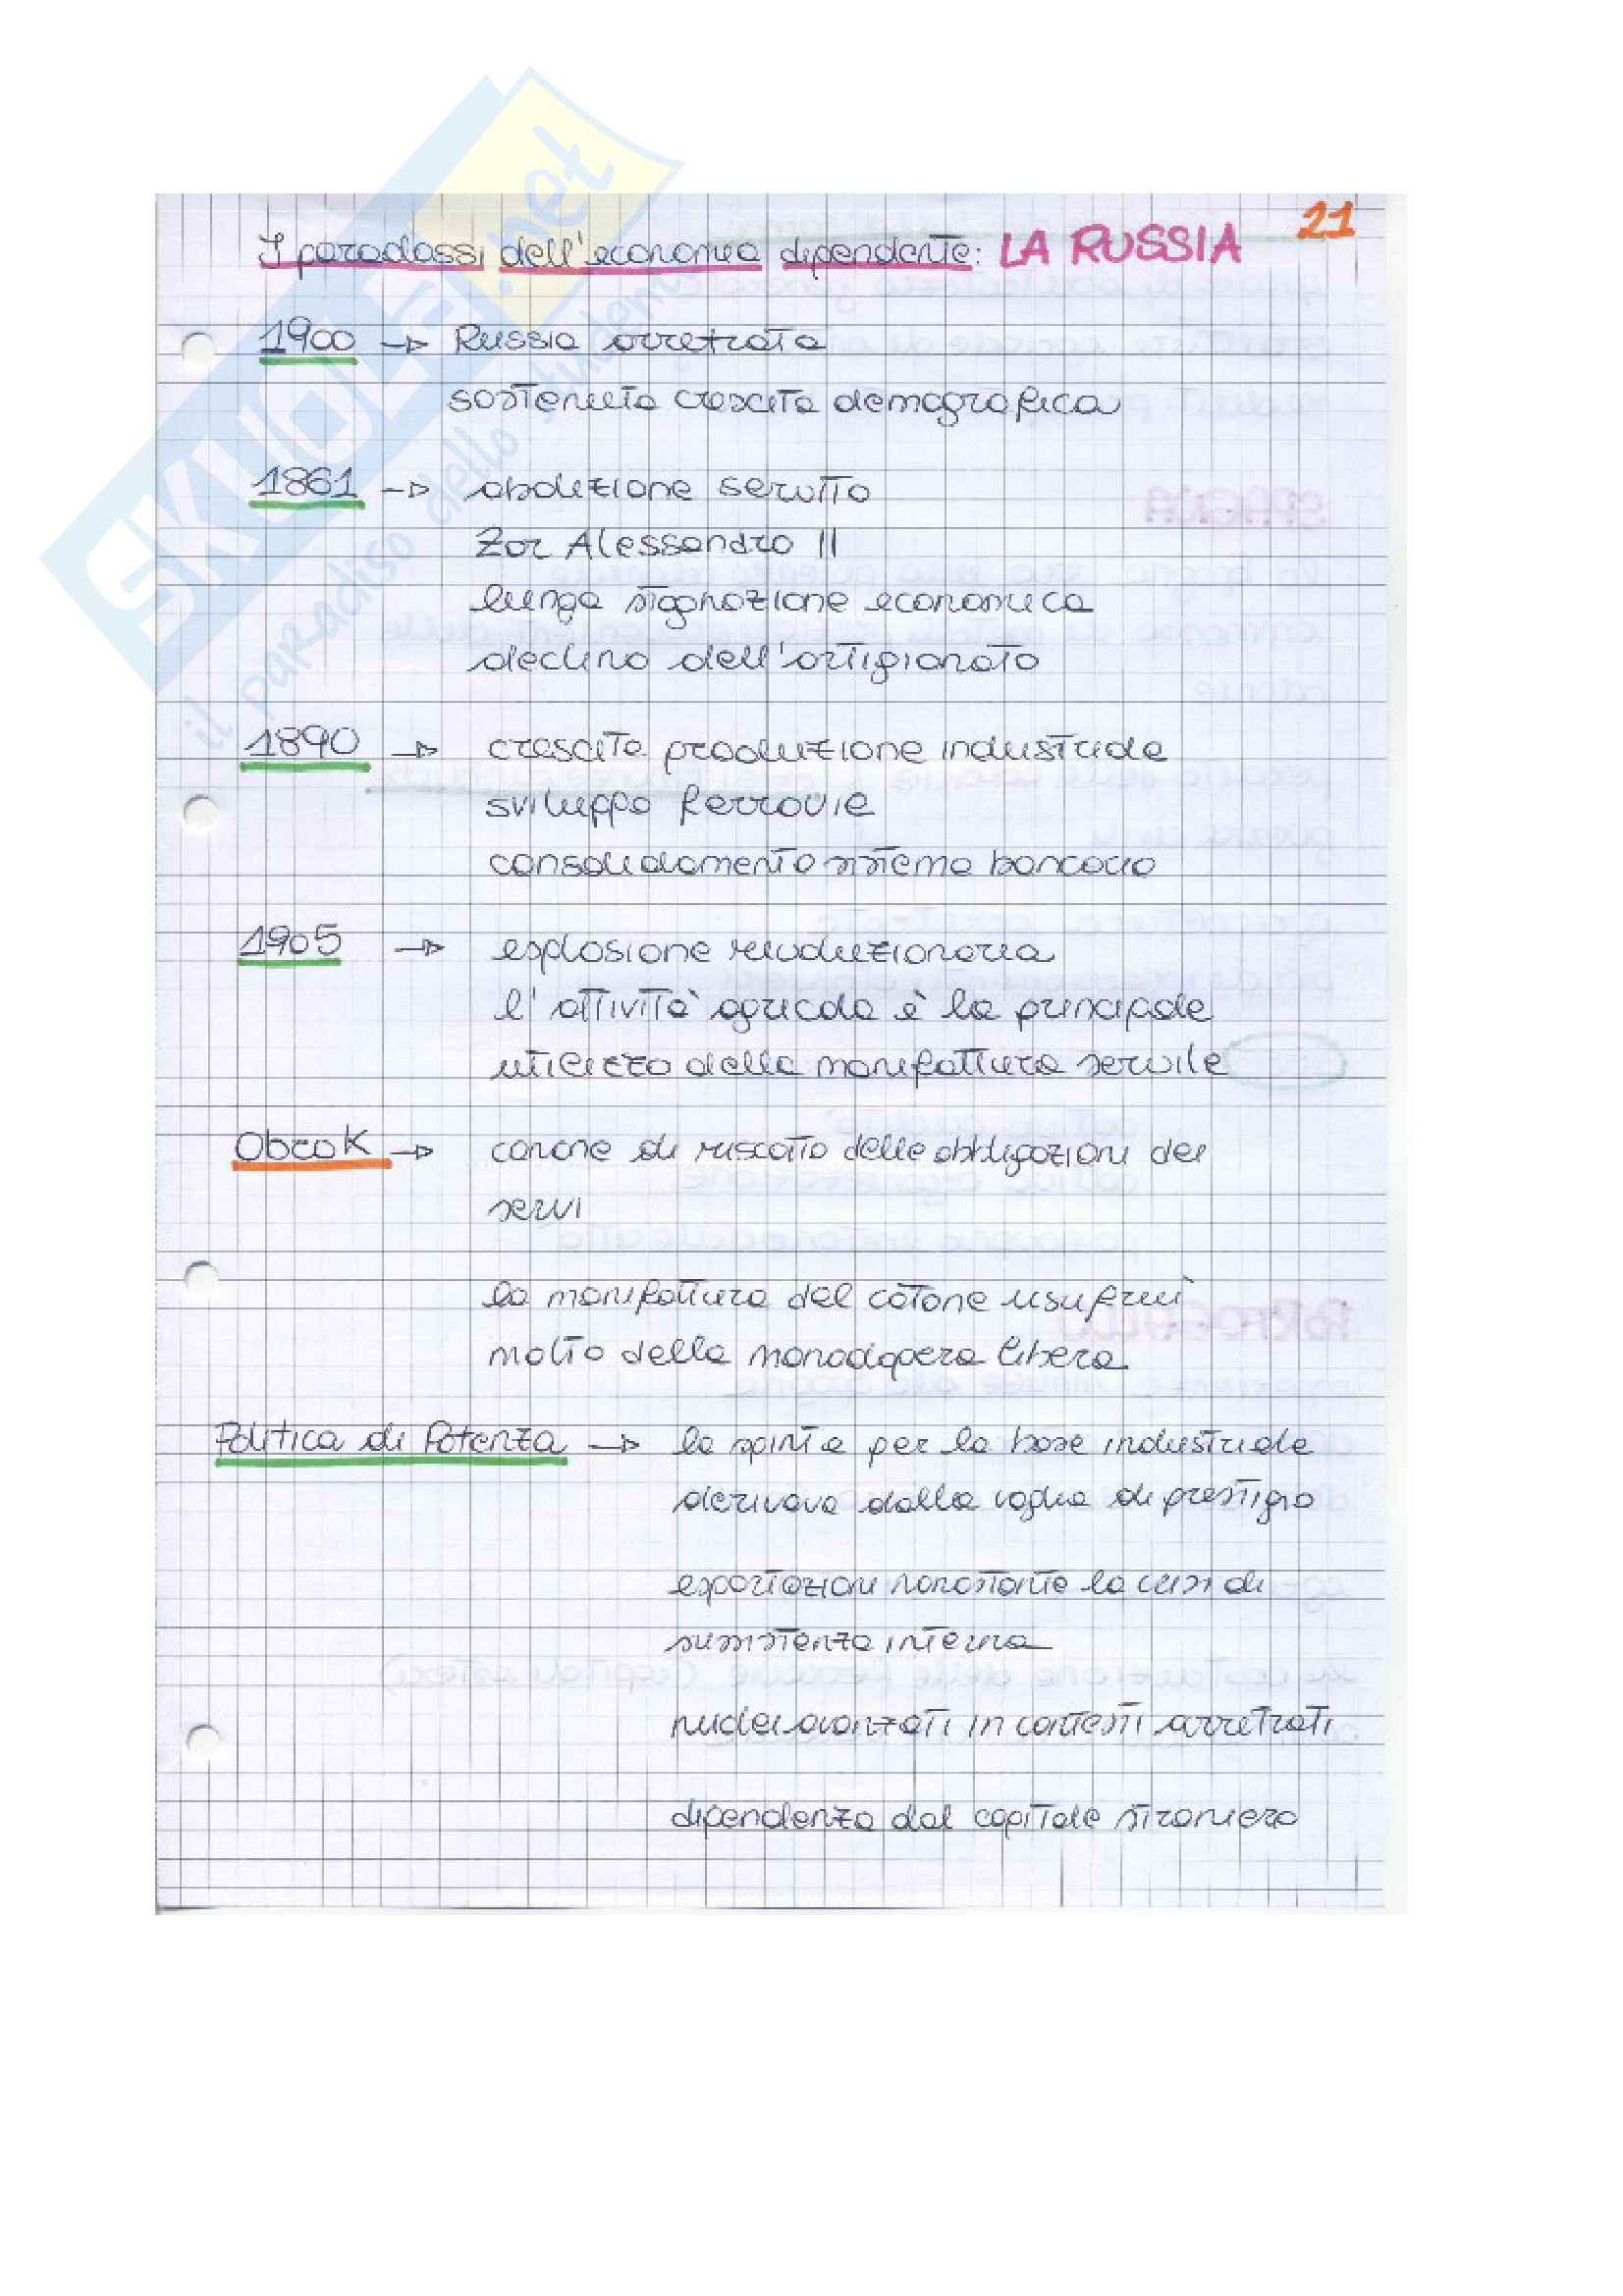 21
I paradossi dell'economia dipendente: LA RUSSIA
1900 → Russia arretrata
sostenuta crescita demografica
1861 → abolizione servitù
Zar Alessandro II
lunga stagnazione economica
declino dell'artigianato
1890 → crescita produzione industriale
sviluppo ferrovie
consolidamento sistema bancario
1905 → esplosione rivoluzionaria
l'attività agricola è la principale
utilizzo della manifattura servile
Obrok → canone di riscatto delle obbligazioni dei
servi
la manifattura del cotone usufruì
molto della manodopera libera
Politica di Potenza → la spinta per la base industriale
derivava dalla voglia di prestigio
esportazioni nonostante la crisi di
sussistenza interna
nuclei avanzati in contesti arretrati
dipendenza dal capitale straniero
SKUOLA.net
il paradiso dello studente